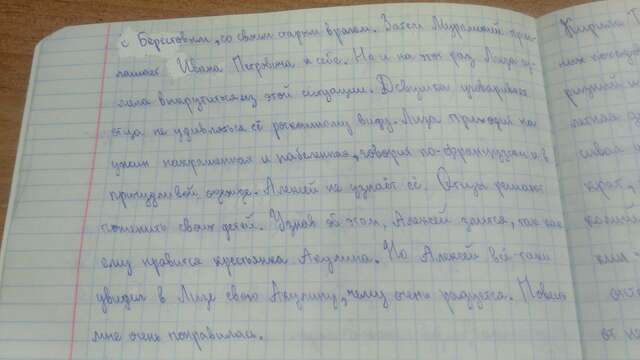 с Берестовым, со своим старым врагом. Затем Муромский при-
глашает Ивана Петровича к себе. Но и на этот раз Лиза су-
мела выкрутиться из этой ситуации. Девушка уговаривает
отца не удивляться её роскошному виду. Лиза приходит на
ужин накрашенная и набеленная, говорит по-французски и в
причудливой одежде. Алексей не узнаёт её. Отцы решают
поженить своих детей. Узнав об этом, Алексей злится, так как
ему нравится крестьянка Акулина. Но Алексей всё-таки
увидел в Лизе свою Акулину, чему очень радуется. Повесть
мне очень понравилась.
Кирила
от но